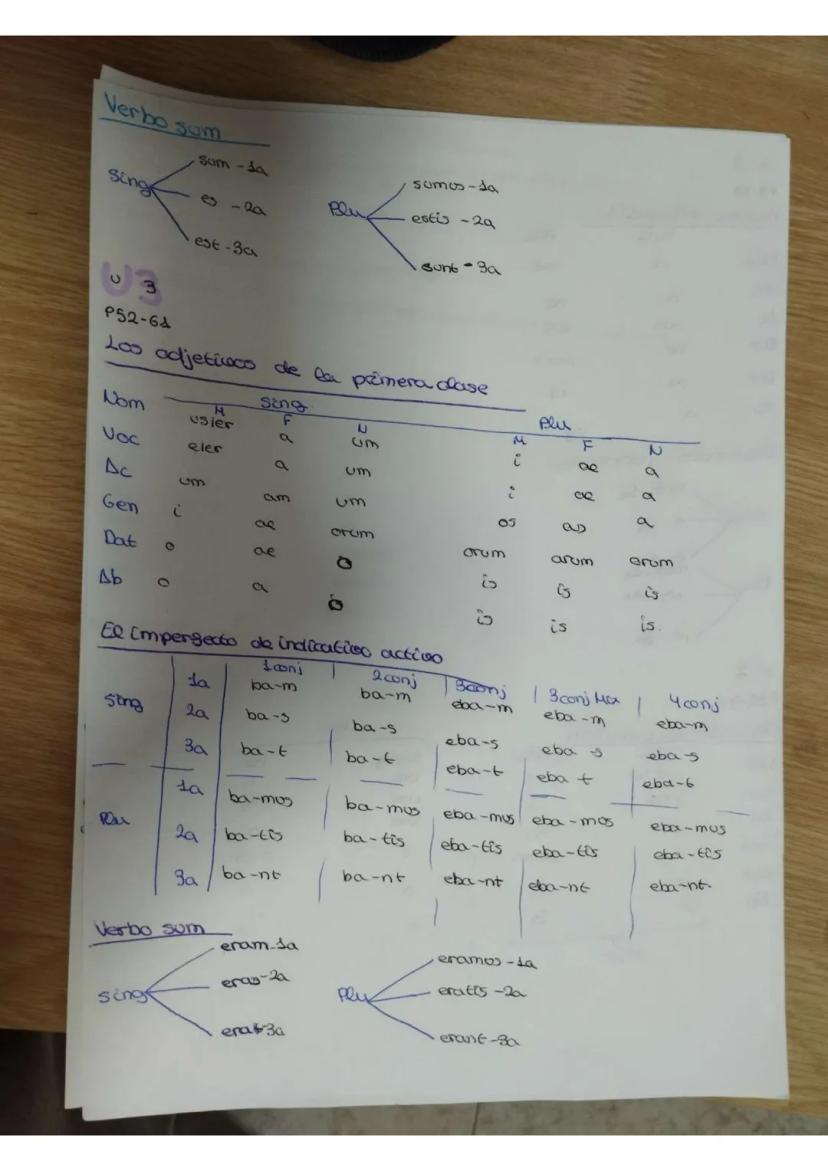 Verbo sum
sing
sum - 1a
es - 2a
est - 3a
Plu
sumus - 1a
estis - 2a
sunt - 3a
U3
U 3
P52-61
Los adjetivos de la primera clase
sing. Plu
M F N M F N
Nom us/er a um i ae a
Voc e/er a um i ae a
Ac um am um os as a
Gen i ae orum orum arum orum
Dat o ae o is is is
Ab o a o is is is.
El imperfecto de indicativo activo
1 conj 2 conj 3 conj 3 conj Mix 4 conj
sing 1a ba-m ba-m eba-m eba-m eba-m
2a ba-s ba-s eba-s eba s eba-s
3a ba-t ba-t eba-t eba t eba-t
Plu 1a ba-mus ba-mus eba-mus eba-mos eba-mus
2a ba-tis ba-tis eba-tis eba-tis eba-tis
3a ba-nt ba-nt eba-nt eba-nt eba-nt.
Verbo sum
sing
eram-1a
eras-2a
erat-3a
Plu
eramos-1a
eratis-2a
erant-3a